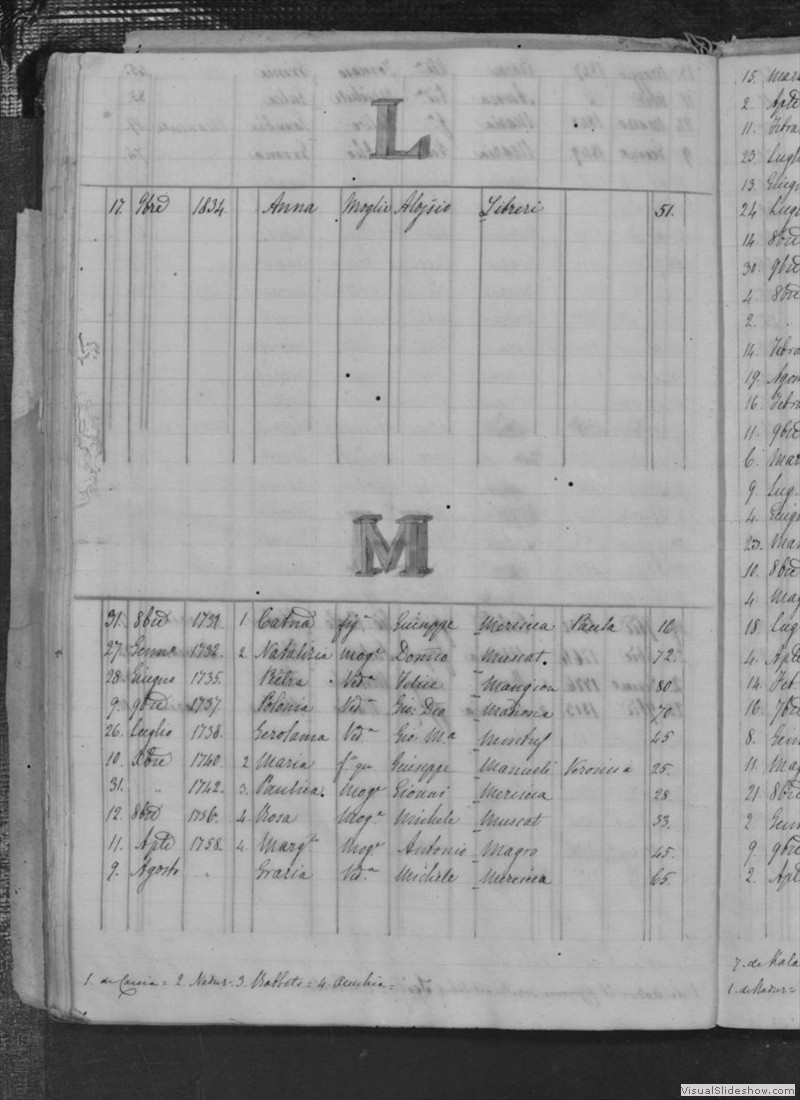 L
17. 9bre 1834. Anna Moglie Aloisio Libreri 51.
M
31. 8bre 1731. 1. Catna figa Giuseppe Mercieca Paula 16.
27. Genno 1732. 2. Natalizia moge Domco Muscat. 72.
28. Giugno 1735. Pietra Vda Felice Mangion 80.
9. 9bre 1737. Polonia Vda Gio: Deo Mahona 70.
26. Luglio 1738. Gerolama Vda Gio Ma 45
10. Xbre 1740. 2 Maria f. qu Giuseppe Veronica 25.
31. " 1742. 3. Paulica. moge Gionni Mercieca 28.
12. 8bre 1756. 4. Rosa moge Michele Muscat 33.
11. Aple 1758. 4. Margta Moge Antonio Magro 45.
9. Agosto " Grazia Vda Michele Mercieca 65.
1. de Caccia = 2. Nadur = 3. Rabbato = 4. =
15. 
2. Aple
11. Febra
23 Lugl
13. Giug
24 Lugl
14. 8bre
30. 9bre
4. 8bre
2. "
14. Febra
19. Agos
16. Febra
11. 9bre
6. Mar
9. Lug.
4. Giug
23. Mar
10. 8bre
4. Mag
18. Lug
4. Aple
14. Feb
16. 7bre
8. Gen
11. Mag
21 8bre
2. Gen
9. 9bre
2. Aple
7. de Kala
1. de Nadur =
VisualSlideshow.com